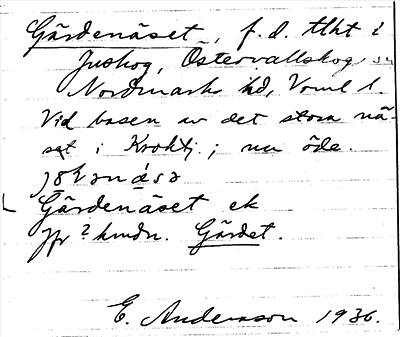 Gärdenäset, f. d. tlht i
Juskog, Östervallskog sn
Nordmarks hd, Vrml l.
Vid basen av det stora nä-
set i Kroktj.; nu öde.
Gärdenäset ek
jfr ? kmdn. Gärdet.
E. Andersson 1936.